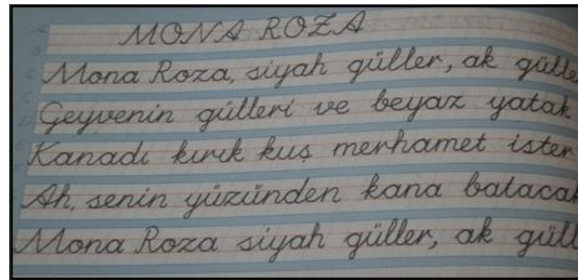 MONA ROZA
Mona Roza, siyah güller, ak gülle
Geyvenin gülleri ve beyaz yatak
Kanadı kırık kuş merhamet ister
Ah, senin yüzünden kana batacak
Mona Roza siyah güller, ak gül